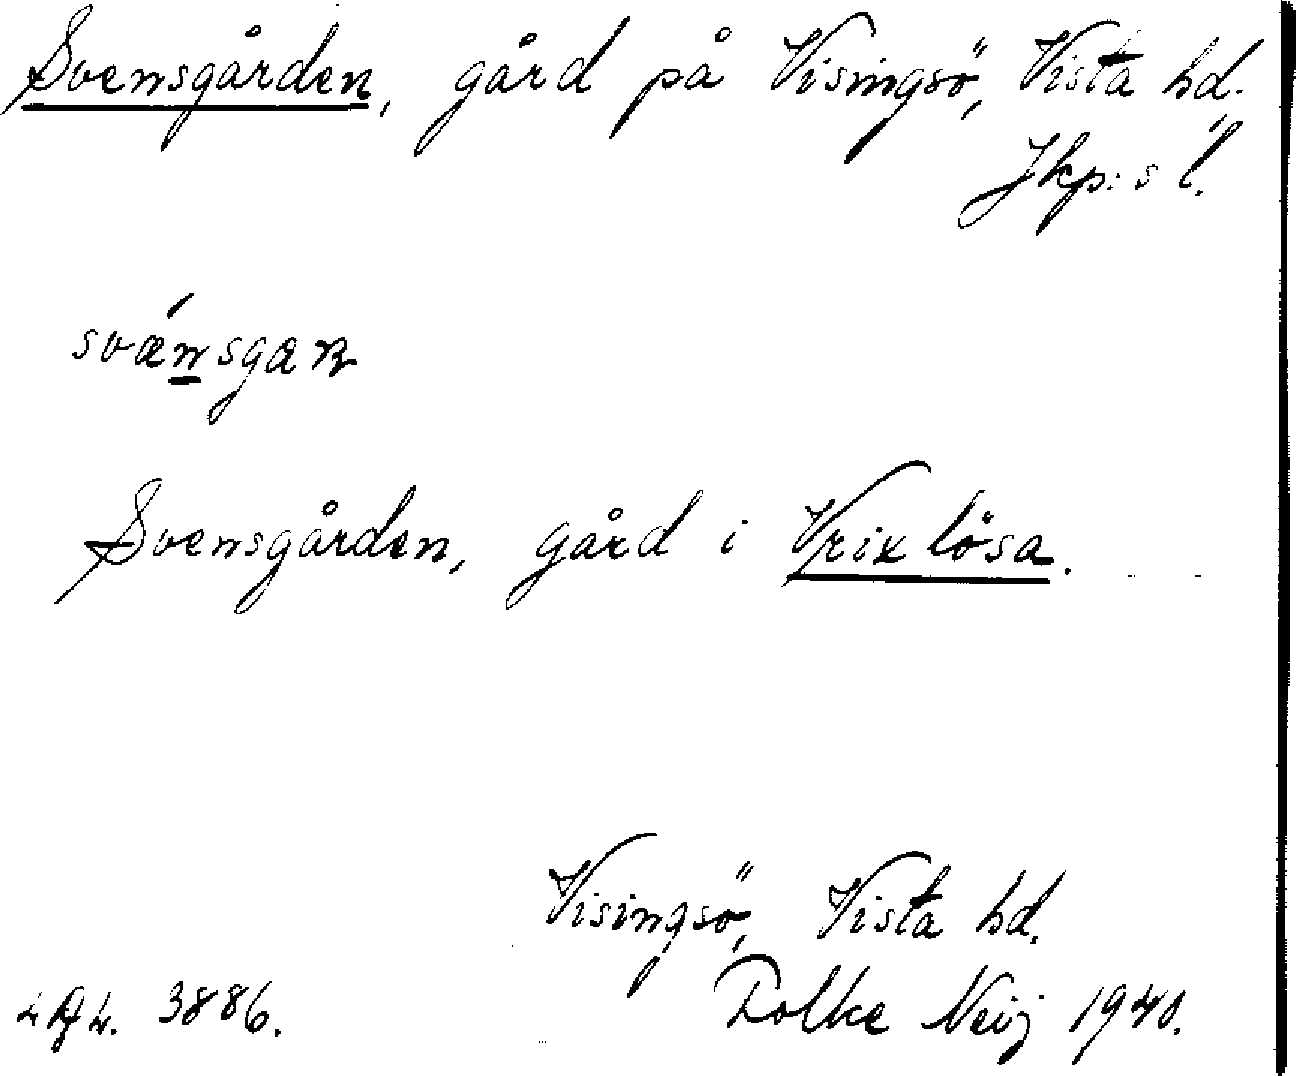 Svensgården, gård på Visingsö, Vista hd.
Jkp:s l.
Svensgården, gård i Vrixlösa.
Visingsö, Vista hd.
3886. Folke Neij 1940.